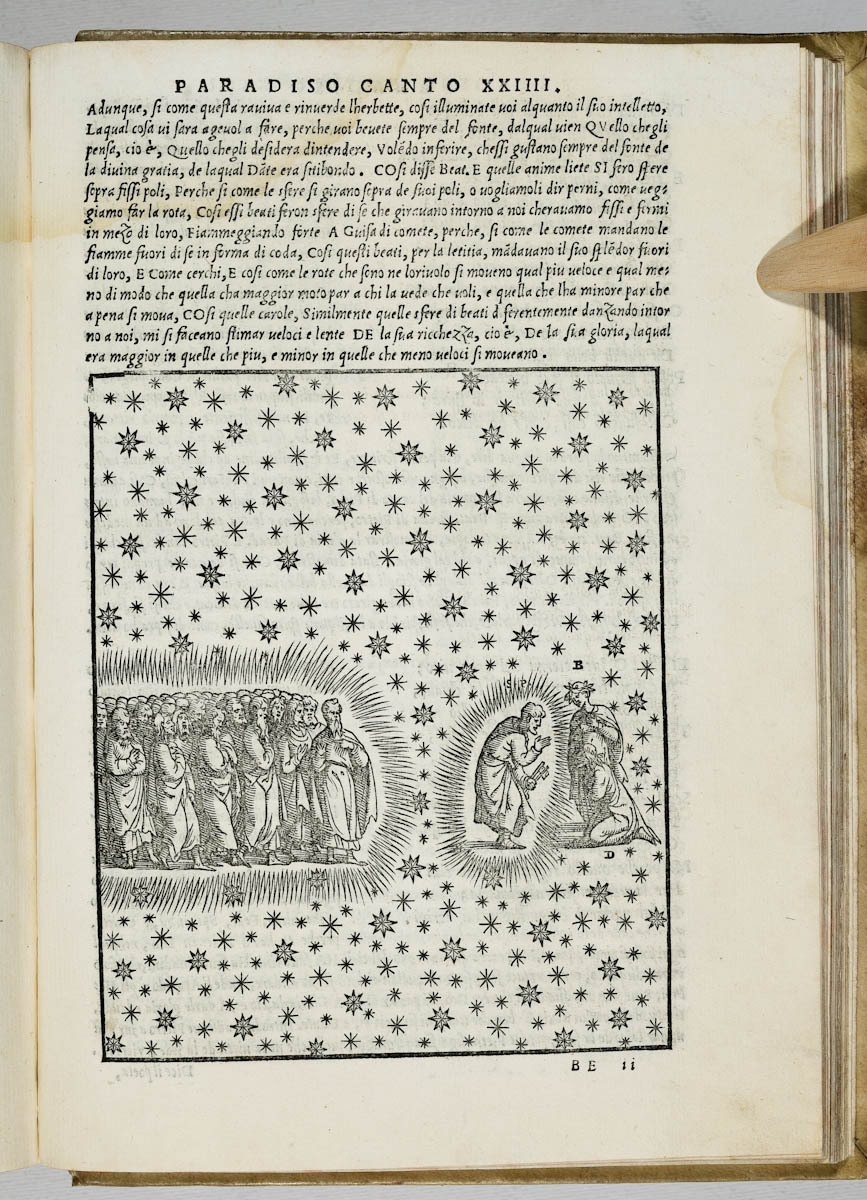 PARADISO CANTO XXIIII.
Adunque, si come questa raviva e rinverde lherbette, cosi illuminate voi alquanto il suo intelletto,
Laqual cosa vi sara agevol a fare, perche voi bevete sempre del fonte, dalqual vien QVello chegli
pensa, cio è, Quello chegli desidera dintendere, Volēdo inferire, chessi gustano sempre del fonte de
la divina gratia, de laqual Dāte era sitibondo. COsi disse Beat. E quelle anime liete SI fero spere
sopra fissi poli, Perche si come le spere si girano sopra de suoi poli, o vogliamoli dir perni, come veg-
giamo far la rota, Cosi essi beati feron spere di se che giravano intorno a noi cheravamo fissi e fermi
in mezo di loro, Fiammeggiando forte A Guisa di comete, perche, si come le comete mandano le
fiamme fuori di se in forma di coda, Cosi questi beati, per la letitia, mādavano il suo splēdor fuori
di loro, E Come cerchi, E cosi come le rote che sono ne loriuolo si moveno qual piu veloce e qual me-
no di modo che quella cha maggior moto par a chi la vede che voli, e quella che lha minore par che
a pena si mova, COsi quelle carole, Similmente quelle spere di beati differentemente danzando intor
no a noi, mi si faceano stimar veloci e lente DE la sua ricchezza, cio è, De la sua gloria, laqual
era maggior in quelle che piu, e minor in quelle che meno veloci si moveano.
B
S P
D
BE ii